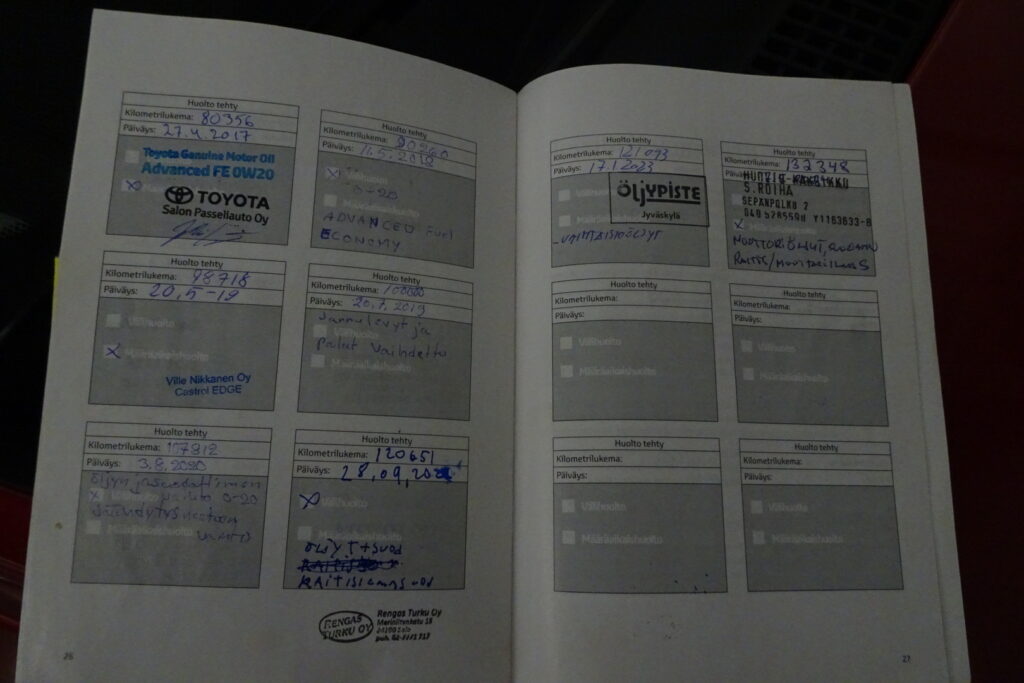 Huolto tehty
Kilometrilukema: 80356
Päiväys: 27.4.2017
Toyota Genuine Motor Oil
Advanced FE 0W20
TOYOTA
Salon Passeliauto Oy
Huolto tehty
Kilometrilukema: 90260
Päiväys: 11.5.2018
0-20
ADVANCED Fuel
ECONOMY
Huolto tehty
Kilometrilukema: 98718
Päiväys: 20.5-19
Välihuolto
Määräaikaishuolto
Ville Nikkanen Oy
Castrol EDGE
Huolto tehty
Kilometrilukema: 100000
Päiväys: 20.7.2019
Jarrulevyt ja
Välihuolto
palat vaihdettu
Määräaikaishuolto
Huolto tehty
Kilometrilukema: 107812
Päiväys: 3.8.2020
öljyn ja suodattimen
Välihuolto vaihto 0-20
Jäähdytysnesteen
Määräaikaishuolto vaihto
Huolto tehty
Kilometrilukema: 120651
Päiväys: 28.09.202
Välihuolto
ÖLJYT+SUOD
RAITISILMASUOD
RENGAS
TURKU OY
Rengas Turku Oy
24100 Salo
26
Huolto tehty
Kilometrilukema: 121093
Päiväys: 17.1.2023
Välihuolto
ÖLJYPISTE
Jyväskylä
-VAIHTEISTOÖLJYT
Huolto tehty
Kilometrilukema: 132348
Päiväys:
S. ROIHA
SEPÄNPOLKU 2
MOOTTORIÖLJYT, SUODATIN
RAITIS/MOOTTORI ILMA S
Huolto tehty
Kilometrilukema:
Päiväys:
Välihuolto
Määräaikaishuolto
Huolto tehty
Kilometrilukema:
Päiväys:
Välihuolto
Määräaikaishuolto
Huolto tehty
Kilometrilukema:
Päiväys:
Välihuolto
Määräaikaishuolto
Huolto tehty
Kilometrilukema:
Päiväys:
Välihuolto
Määräaikaishuolto
27